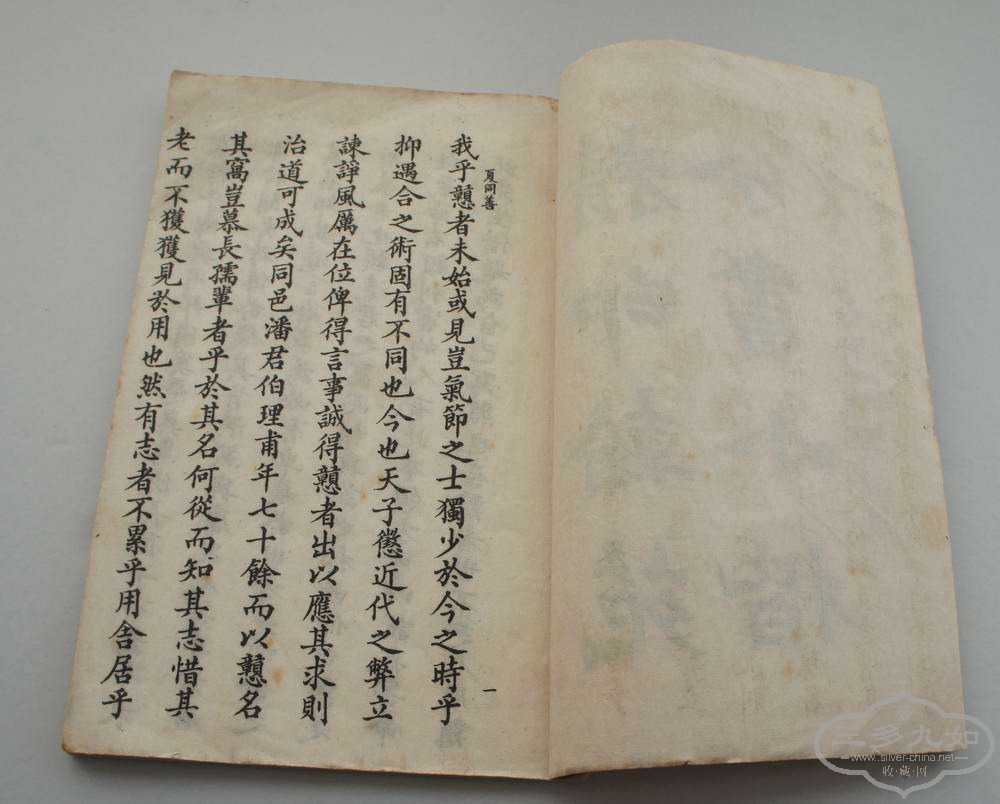 夏同善
我乎戇者未始或見豈氣節之士獨少於今之時乎
抑遇合之術固有不同也今也天子懲近代之弊立
諫諍風厲在位俾得言事誠得戇者出以應其求則
治道可成矣同邑潘君伯理甫年七十餘而以戇名
其窩豈慕長孺輩者乎於其名何從而知其志惜其
老而不獲獲見於用也然有志者不累乎用舍居乎
一
三多九如
www.silver-china.net
收·藏·网